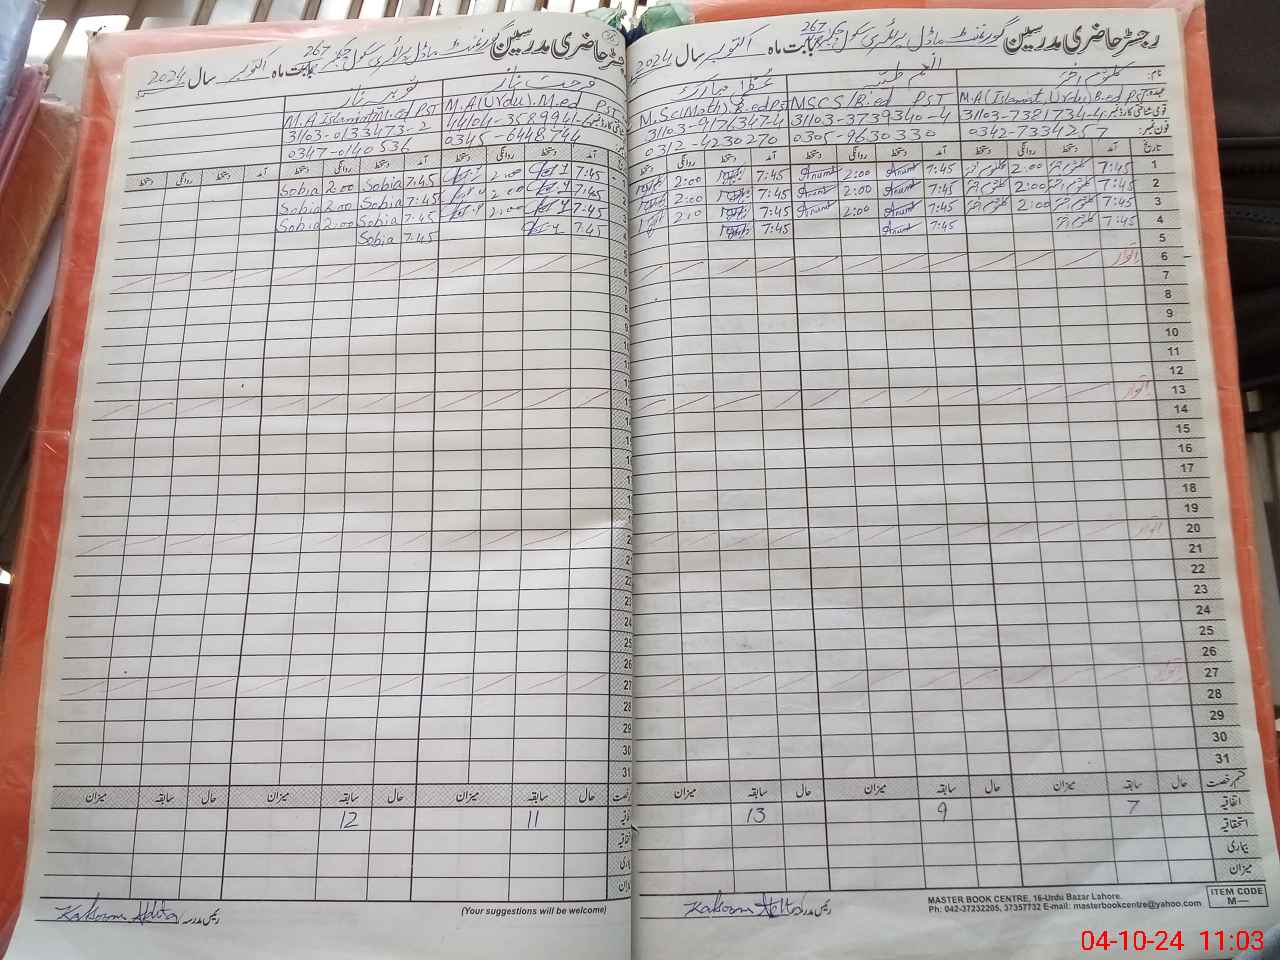 رجسٹر حاضری مدرسین گورنمنٹ ماڈل پرائمری سکول چک 267 بابت ماہ اکتوبر سال 2024
نام: کلثوم اختر
M.A (Islamiat, Urdu) B.ed Pst
31103-7381734-4
فون نمبر: 0342-7334257
انعم طیبہ
MSCS/B.ed PST
31103-3739340-4
0305-9630330
M.Sc(Math) B.ed Pst
31103-9176347-4
0312-4230270
تاریخ آمد دستخط روانگی دستخط آمد دستخط روانگی دستخط آمد دستخط روانگی
1 7:45 کلثوم اختر 2:00 کلثوم اختر 7:45 Anum 2:00 Anum 7:45 2:00
2 7:45 کلثوم اختر 2:00 کلثوم اختر 7:45 Anum 2:00 Anum 7:45 2:00
3 7:45 کلثوم اختر 2:00 کلثوم اختر 7:45 Anum 2:00 Anum 7:45 2:00
4 7:45 کلثوم اختر 7:45 Anum 7:45
5
6 اتوار
7
8
9
10
11
12
13 اتوار
14
15
16
17
18
19
20 اتوار
21
22
23
24
25
26
27 اتوار
28
29
30
31
قسم رخصت حال سابقہ میزان حال سابقہ میزان حال سابقہ میزان
اتفاقیہ 7 9 13
استحقاقیہ
بیماری
میزان
رئیس مدرسہ
MASTER BOOK CENTRE, 16-Urdu Bazar Lahore.
Ph: 042-37232205, 37357732 E-mail: masterbookcentre@yahoo.com
ITEM CODE
M—
رجسٹر حاضری مدرسین گورنمنٹ ماڈل پرائمری سکول چک 267 بابت ماہ اکتوبر سال 2024
فرحت ناز
M.A (Urdu) M.ed PST
0345-6448744
ثوبیہ ناز
M.A Islamiat M.ed PST
31103-0133473-2
0347-0140536
آمد دستخط روانگی دستخط آمد دستخط روانگی دستخط آمد دستخط روانگی دستخط
7:45 2:00 7:45 Sobia 2:00 Sobia
7:45 2:00 7:45 Sobia 2:00 Sobia
7:45 2:00 7:45 Sobia 2:00 Sobia
7:45 7:45 Sobia
حال سابقہ میزان حال سابقہ میزان حال سابقہ میزان
11 12
(Your suggestions will be welcome)
رئیس مدرسہ
04-10-24 11:03